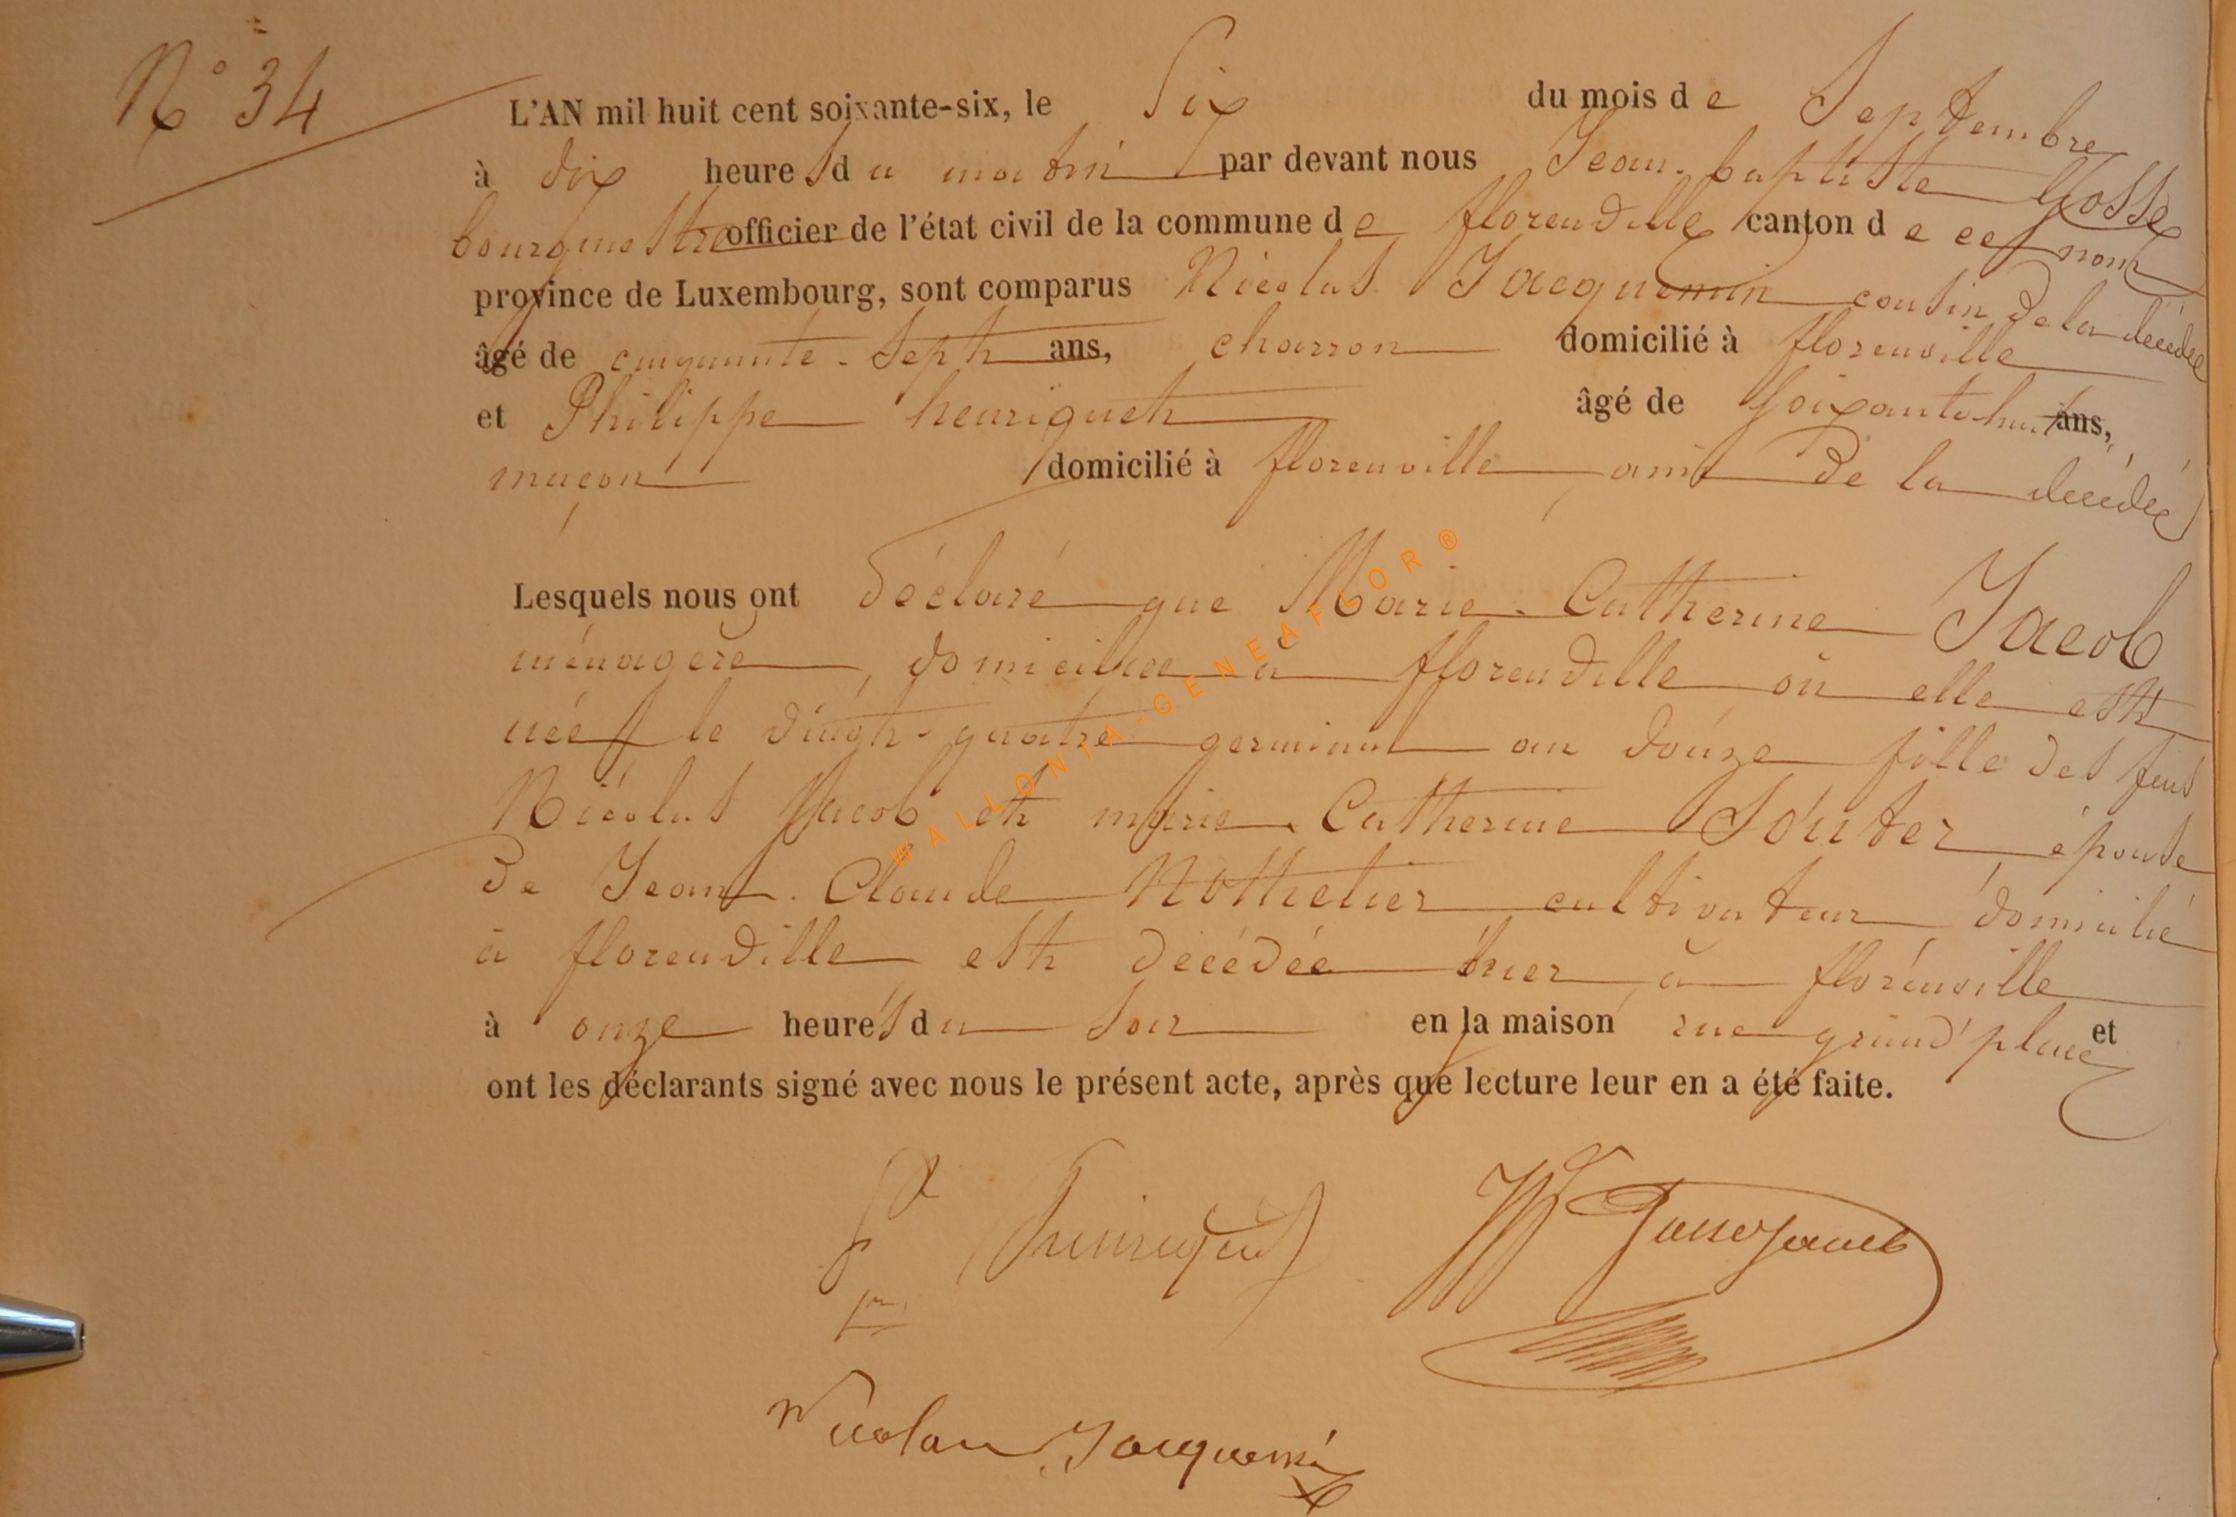 N° 34
L'AN mil huit cent soixante-six, le Six du mois de Septembre
à dix heures du matin par devant nous Jean-baptiste Gosse
bourgmestre officier de l'état civil de la commune de florenville canton de ce nom
province de Luxembourg, sont comparus Nicolas Jacquemin cousin de la décédée
âgé de cinquante-Sept ans, charron domicilié à florenville
et Philippe henriquet âgé de Soixante huit ans,
maçon domicilié à florenville ami de la décédée
Lesquels nous ont déclaré que Marie-Catherine Jacob
ménagère, domiciliée à florenville où elle est
née le vingt-quatre germinal an douze fille des feus
Nicolas Jacob et marie-Catherine Souter épouse
de Jean-Claude Nothelier cultivateur domicilié
à florenville est décédée hier à florenville
à onze heures du soir en la maison rue grand'place et
ont les déclarants signé avec nous le présent acte, après que lecture leur en a été faite.
henriquet
Nicolas Jacquemin
WALLONIA-GENEAFLOR®